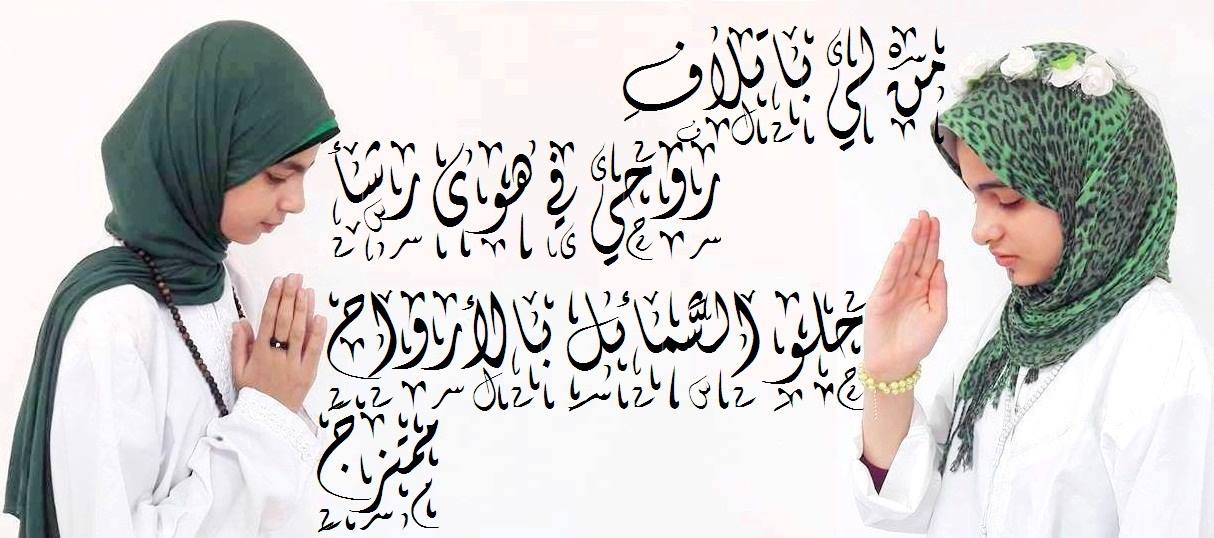 من لي باتلاف
روحي في هوى رشأ
حلو الشمائل بالأرواح
ممتزج